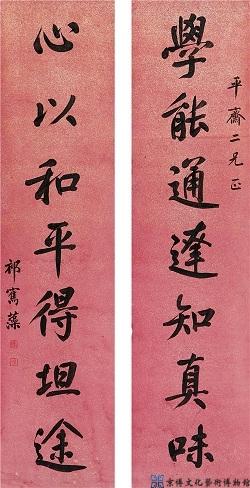 學能通達知真味
平齋二兄正
心以和平得坦途
祁寯藻
京傳文化藝術博物館